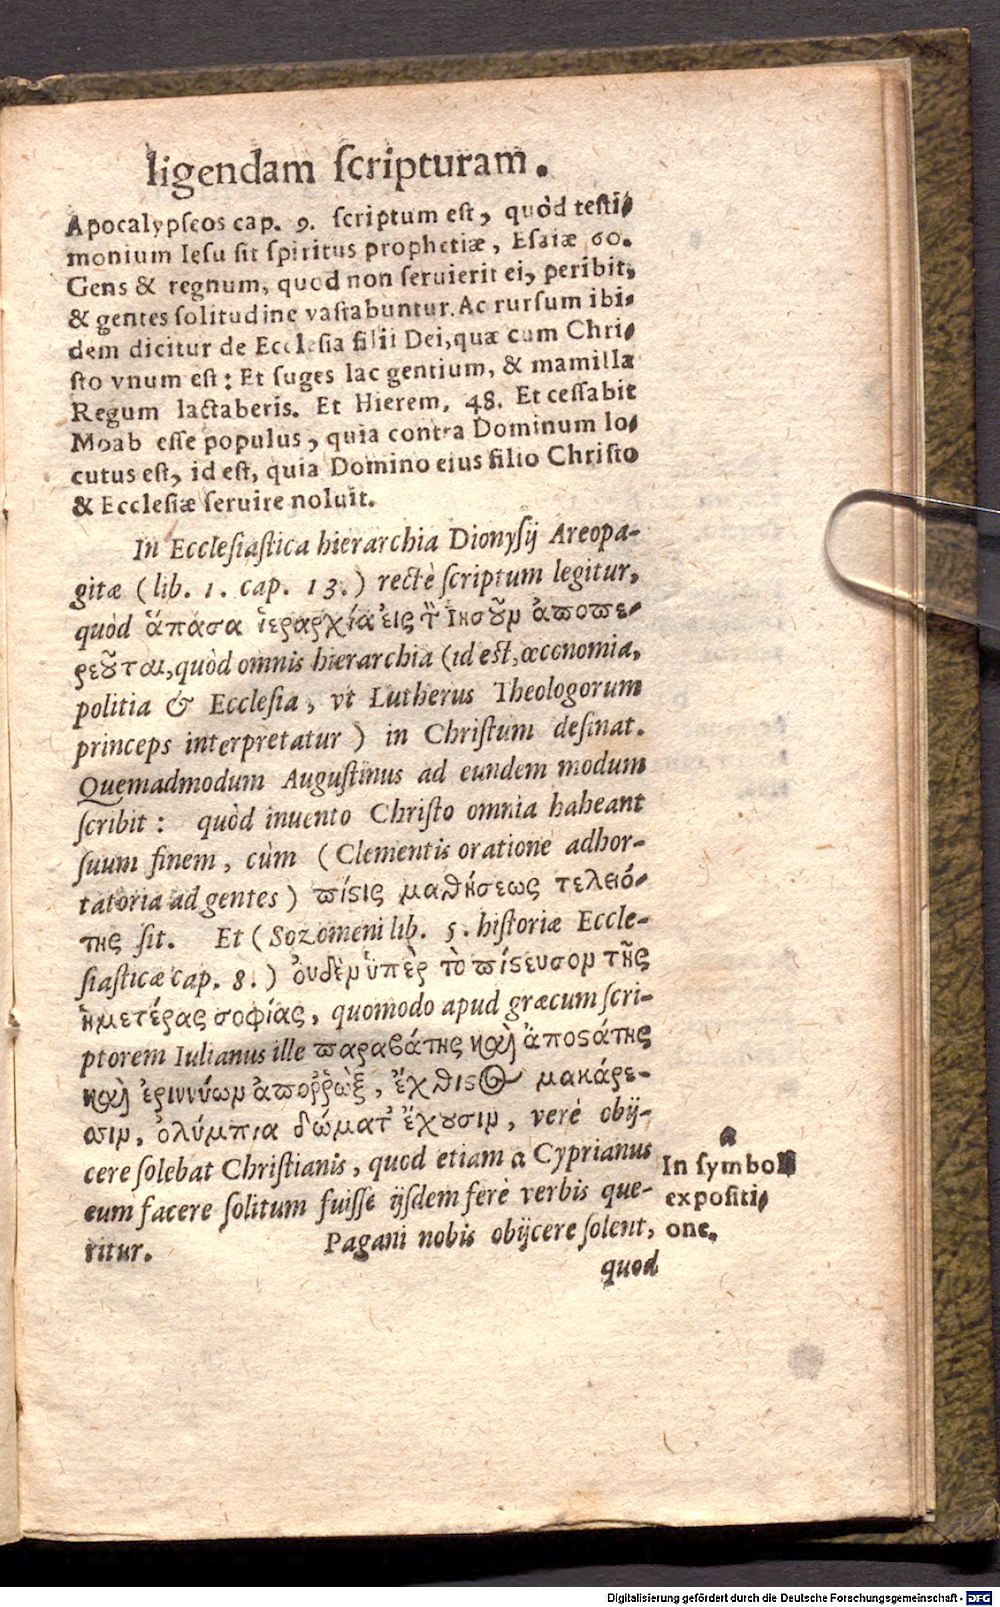 ligendam ſcripturam.
Apocalypſeos cap. 9. ſcriptum eſt, quòd teſti-
monium Ieſu ſit ſpiritus prophetiæ, Eſaiæ 60.
Gens & regnum, quod non ſeruierit ei, peribit,
& gentes ſolitudine vaſtabuntur. Ac rurſum ibi-
dem dicitur de Eccleſia filii Dei, quæ cum Chri-
ſto vnum eſt: Et ſuges lac gentium, & mamilla
Regum lactaberis. Et Hierem, 48. Et ceſſabit
Moab eſſe populus, quia contra Dominum lo-
cutus eſt, id eſt, quia Domino eius filio Chriſto
& Eccleſiæ ſeruire noluit.
In Eccleſiaſtica hierarchia Dionyſij Areopa-
gitæ (lib. 1. cap. 13.) rectè ſcriptum legitur,
quòd ἅπάσα ἱεραρχία εἰς τ̀ Ἰησοῦν ἀποπε-
ρεῦται, quòd omnis hierarchia (id eſt, œconomia,
politia & Eccleſia, vt Lutherus Theologorum
princeps interpretatur) in Chriſtum deſinat.
Quemadmodum Auguſtinus ad eundem modum
ſcribit: quòd inuento Chriſto omnia habeant
ſuum finem, cùm (Clementis oratione adhor-
tatoria ad gentes) πίϛις μαθήσεως τελειό-
της ſit. Et (Sozomeni lib. 5. hiſtoriæ Eccle-
ſiaſticæ cap. 8.) ὀυδὲν ὑπὲρ τὸ πίϛευσον τῆς
ἡμετέρας σοφίας, quomodo apud græcum ſcri-
ptorem Iulianus ille παραβάτης καὶ ἀποϛάτης
καὶ ἐριννύων ἀποῤῥὼξ, ἔχθιϛος μακάρε-
σιν, ὀλύμπια δώματ' ἔχουσιν, verè obij-
cere ſolebat Chriſtianis, quod etiam a Cyprianus
eum facere ſolitum fuiſſe ijſdem ferè verbis que-
ritur. Pagani nobis obijcere ſolent,
quod
a
In ſymboli
expoſiti-
one.
Digitalisierung gefördert durch die Deutsche Forschungsgemeinschaft - DFG